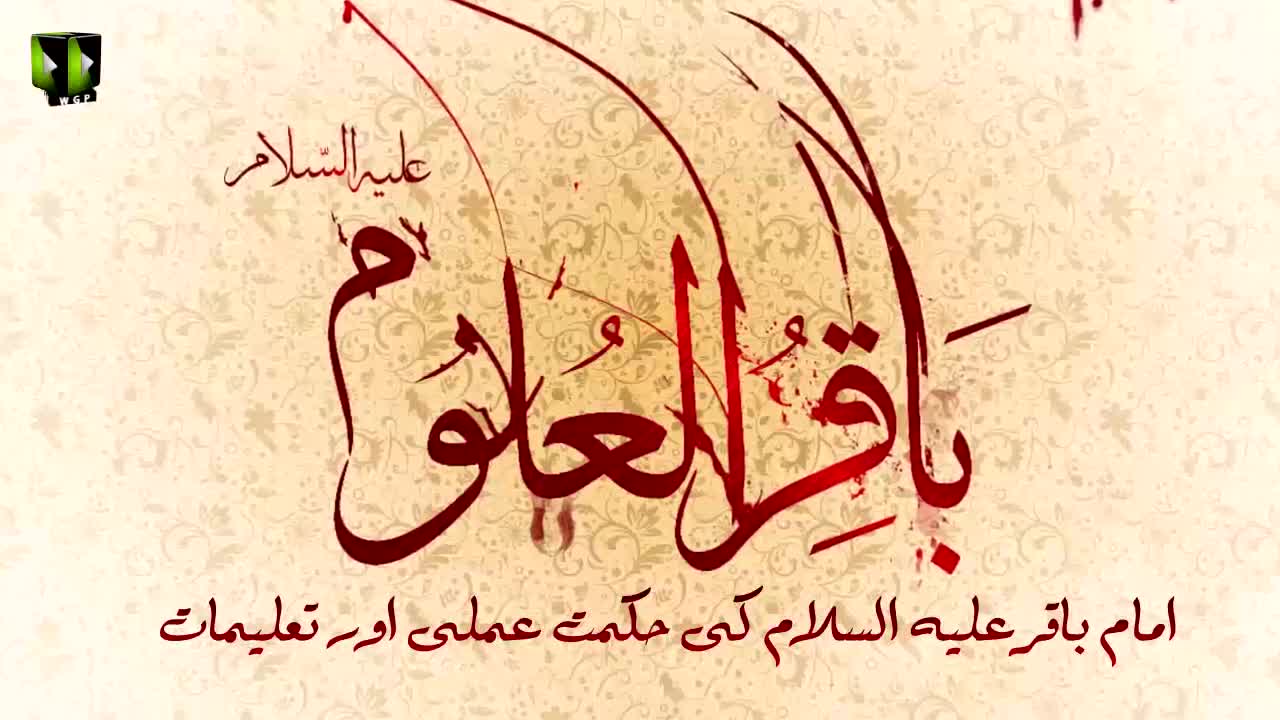 WGP
علیہ السّلام
بَاقِرُ العُلُوم
امام باقر علیہ السلام کی حکمت عملی اور تعلیمات